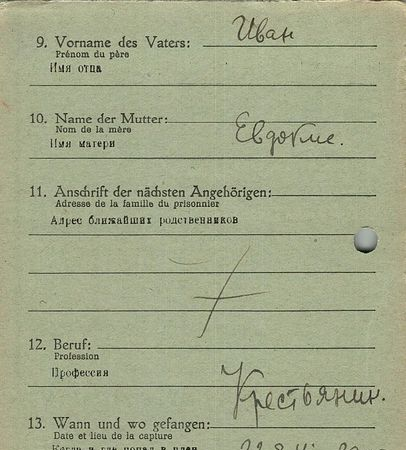 9. Vorname des Vaters: Иван
Prénom du père
Имя отца
10. Name der Mutter: Евдокие.
Nom de la mère
Имя матери
11. Anschrift der nächsten Angehörigen:
Adresse de la famille du prisonnier
Адрес ближайших родственников
12. Beruf:
Profession
Профессия Крестьянин.
13. Wann und wo gefangen:
Date et lieu de la capture
Когда и где попал в плен